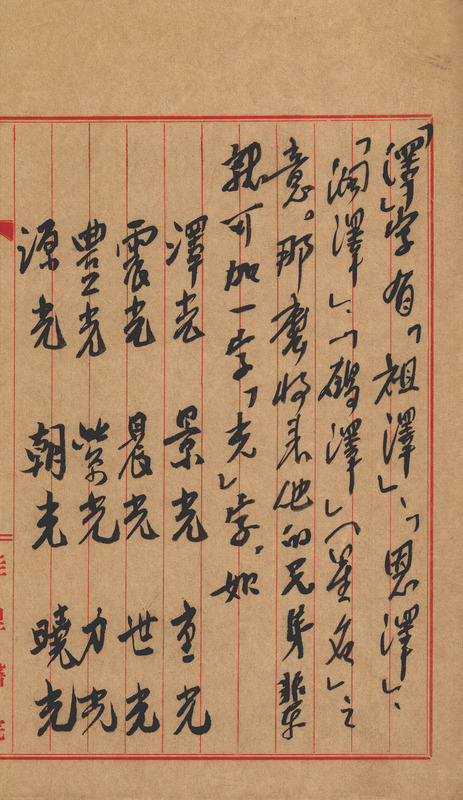 「澤」字有「祖澤」、「恩澤」、
「润澤」、「澤」(星名」之
意。那麽将来他的兄弟輩
就可加一字「光」字，如
澤光 景光 重光
震光 晨光 世光
豊光 紫光 力光
源光 朝光 曉光